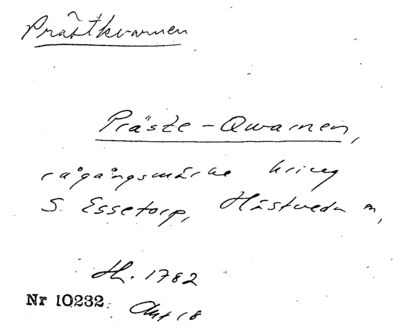 Prästkvarnen
Präste-Qwarnen,
rågångsmärke kring
S. Essetorp, Hästveda sn,
H. 1782
Nr 10232 Akt 18